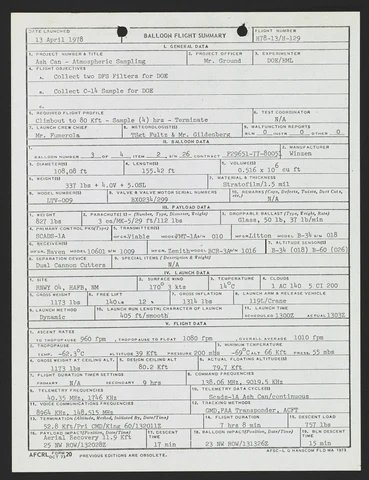 DATE LAUNCHED
13 April 1978
BALLOON FLIGHT SUMMARY
FLIGHT NUMBER
H78-13/H-129
I. GENERAL DATA
1. PROJECT NUMBER & TITLE
Ash Can - Atmospheric Sampling
2. PROJECT OFFICER
Mr. Ground
3. EXPERIMENTER
DOE/EML
4. FLIGHT OBJECTIVES
a. Collect two DFS Filters for DOE
b. Collect C-14 Sample for DOE
c.
5. REQUIRED FLIGHT PROFILE
Climbout to 80 Kft - Sample (4) hrs - Terminate
6. TEST COORDINATOR
N/A
7. LAUNCH CREW CHIEF
Mr. Fumerola
8. METEOROLOGISTS
TSgt Fultz & Mr. Gildenberg
9. MALFUNCTION REPORTS
BLN 0 INSTR 0 OTHER 0
II. BALLOON DATA
1.
BALLOON NUMBER 3 OF 4 ITEM 2 W/N 26 CONTRACT F29651-77-8005
2. MANUFACTURER
Winzen
3. DIAMETER
108.08 ft
4. LENGTH
155.42 ft
5. VOLUME
0.516 X 10⁶ cu ft
6. WEIGHT
337 lbs + 4.0V + 5.0SL
7. MATERIAL & THICKNESS
Stratofilm/1.5 mil
8. MODEL NUMBER
LTV-009
9. VALVE & VALVE MOTOR SERIAL NUMBERS
EXG234/299
III. PAYLOAD DATA
1. WEIGHT
827 lbs
2. PARACHUTES
3 ea/MK-5/29 ft/112 lbs
3. DROPPABLE BALLAST (Type, Weight, Rate)
Glass, 50 lb, 37 lb/min
4. PRIMARY CONTROL PKG (Type)
SCADS-1A
5. TRANSMITTERS
HF-S/N Visble MODEL PMT-1A S/N 010
MODEL B-34 S/N 018
6. RECEIVERS
MODEL 10601 S/N 1009 Zenith S/N 1016
7. ALTITUDE SENSORS
B-34 (018) B-60 (026)
8. SEPARATION DEVICE
Dual Cannon Cutters
N/A
IV. LAUNCH DATA
1. SITE
HHWY 04, HAFB, NM
2. SURFACE WIND
170° 3 kts
3. TEMPERATURE
14°C
4. CLOUDS
1 AC 140 5 CI 200
5. GROSS WEIGHT
1173 lbs
6. FREE LIFT
140 LBS 12 %
7. GROSS INFLATION
1314 lbs
8. LAUNCH ARM & RELEASE VEHICLE
119L/Crane
9. LAUNCH METHOD
Dynamic
405 ft/smooth
SCHEDULED 1300Z ACTUAL 1303Z
V. FLIGHT DATA
1. ASCENT RATES
TO TROPOPAUSE 960 fpm TROPOPAUSE TO FLOAT 1080 fpm OVERALL AVERAGE 1010 fpm
2. TROPOPAUSE
TEMP -62.3°C ALTITUDE 39 Kft PRESSURE 200 mbs
3. MINIMUM TEMPERATURE
-69°C ALT 66 Kft PRESS. 55 mbs
4. GROSS WEIGHT AT CEILING ALT
1173 lbs
5. DESIGN CEILING ALT
80.2 Kft
6. ACTUAL FLOATING ALTITUDE(S)
79.7 Kft
7. FLIGHT DURATION TIMER SETTINGS
PRIMARY N/A SECONDARY 9 hrs
8. COMMAND FREQUENCIES
138.06 MHz, 9019.5 KHz
9. TELEMETRY FREQUENCIES
40.35 MHz, 1746 KHz
10. TELEMETRY DATA CYCLE(S)
Scads-1A Ash Can/continuous
11. VOICE COMMUNICATIONS FREQUENCIES
8964 KHz, 148.515 MHz
12. TRACKING METHODS
GMD, FAA Transponder, ACFT
13. TERMINATION (Altitude, Method, Initiated By, Date/Time)
52.8 Kft/Pri CMD/King 60/132011Z
14. FLIGHT DURATION
7 hrs 8 min
15. DESCENT LOAD
757 lbs
16. PAYLOAD IMPACT (Position, Date/Time)
Aerial Recovery 11.9 Kft
25 NW BOW/132028Z
17. DESCENT TIME
17 min
18. BALLOON IMPACT (Position, Date/Time)
23 NW BOW/132026Z
19. BLN DESCENT TIME
15 min
AFCRL FORM 20
PREVIOUS EDITIONS ARE OBSOLETE.
AFSC-L G HANSCOM FLD MA 1975